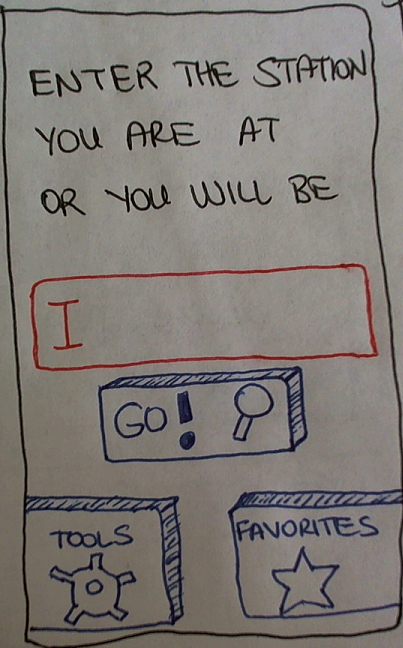 ENTER THE STATION
YOU ARE AT
OR YOU WILL BE
I
GO!
TOOLS
FAVORITES